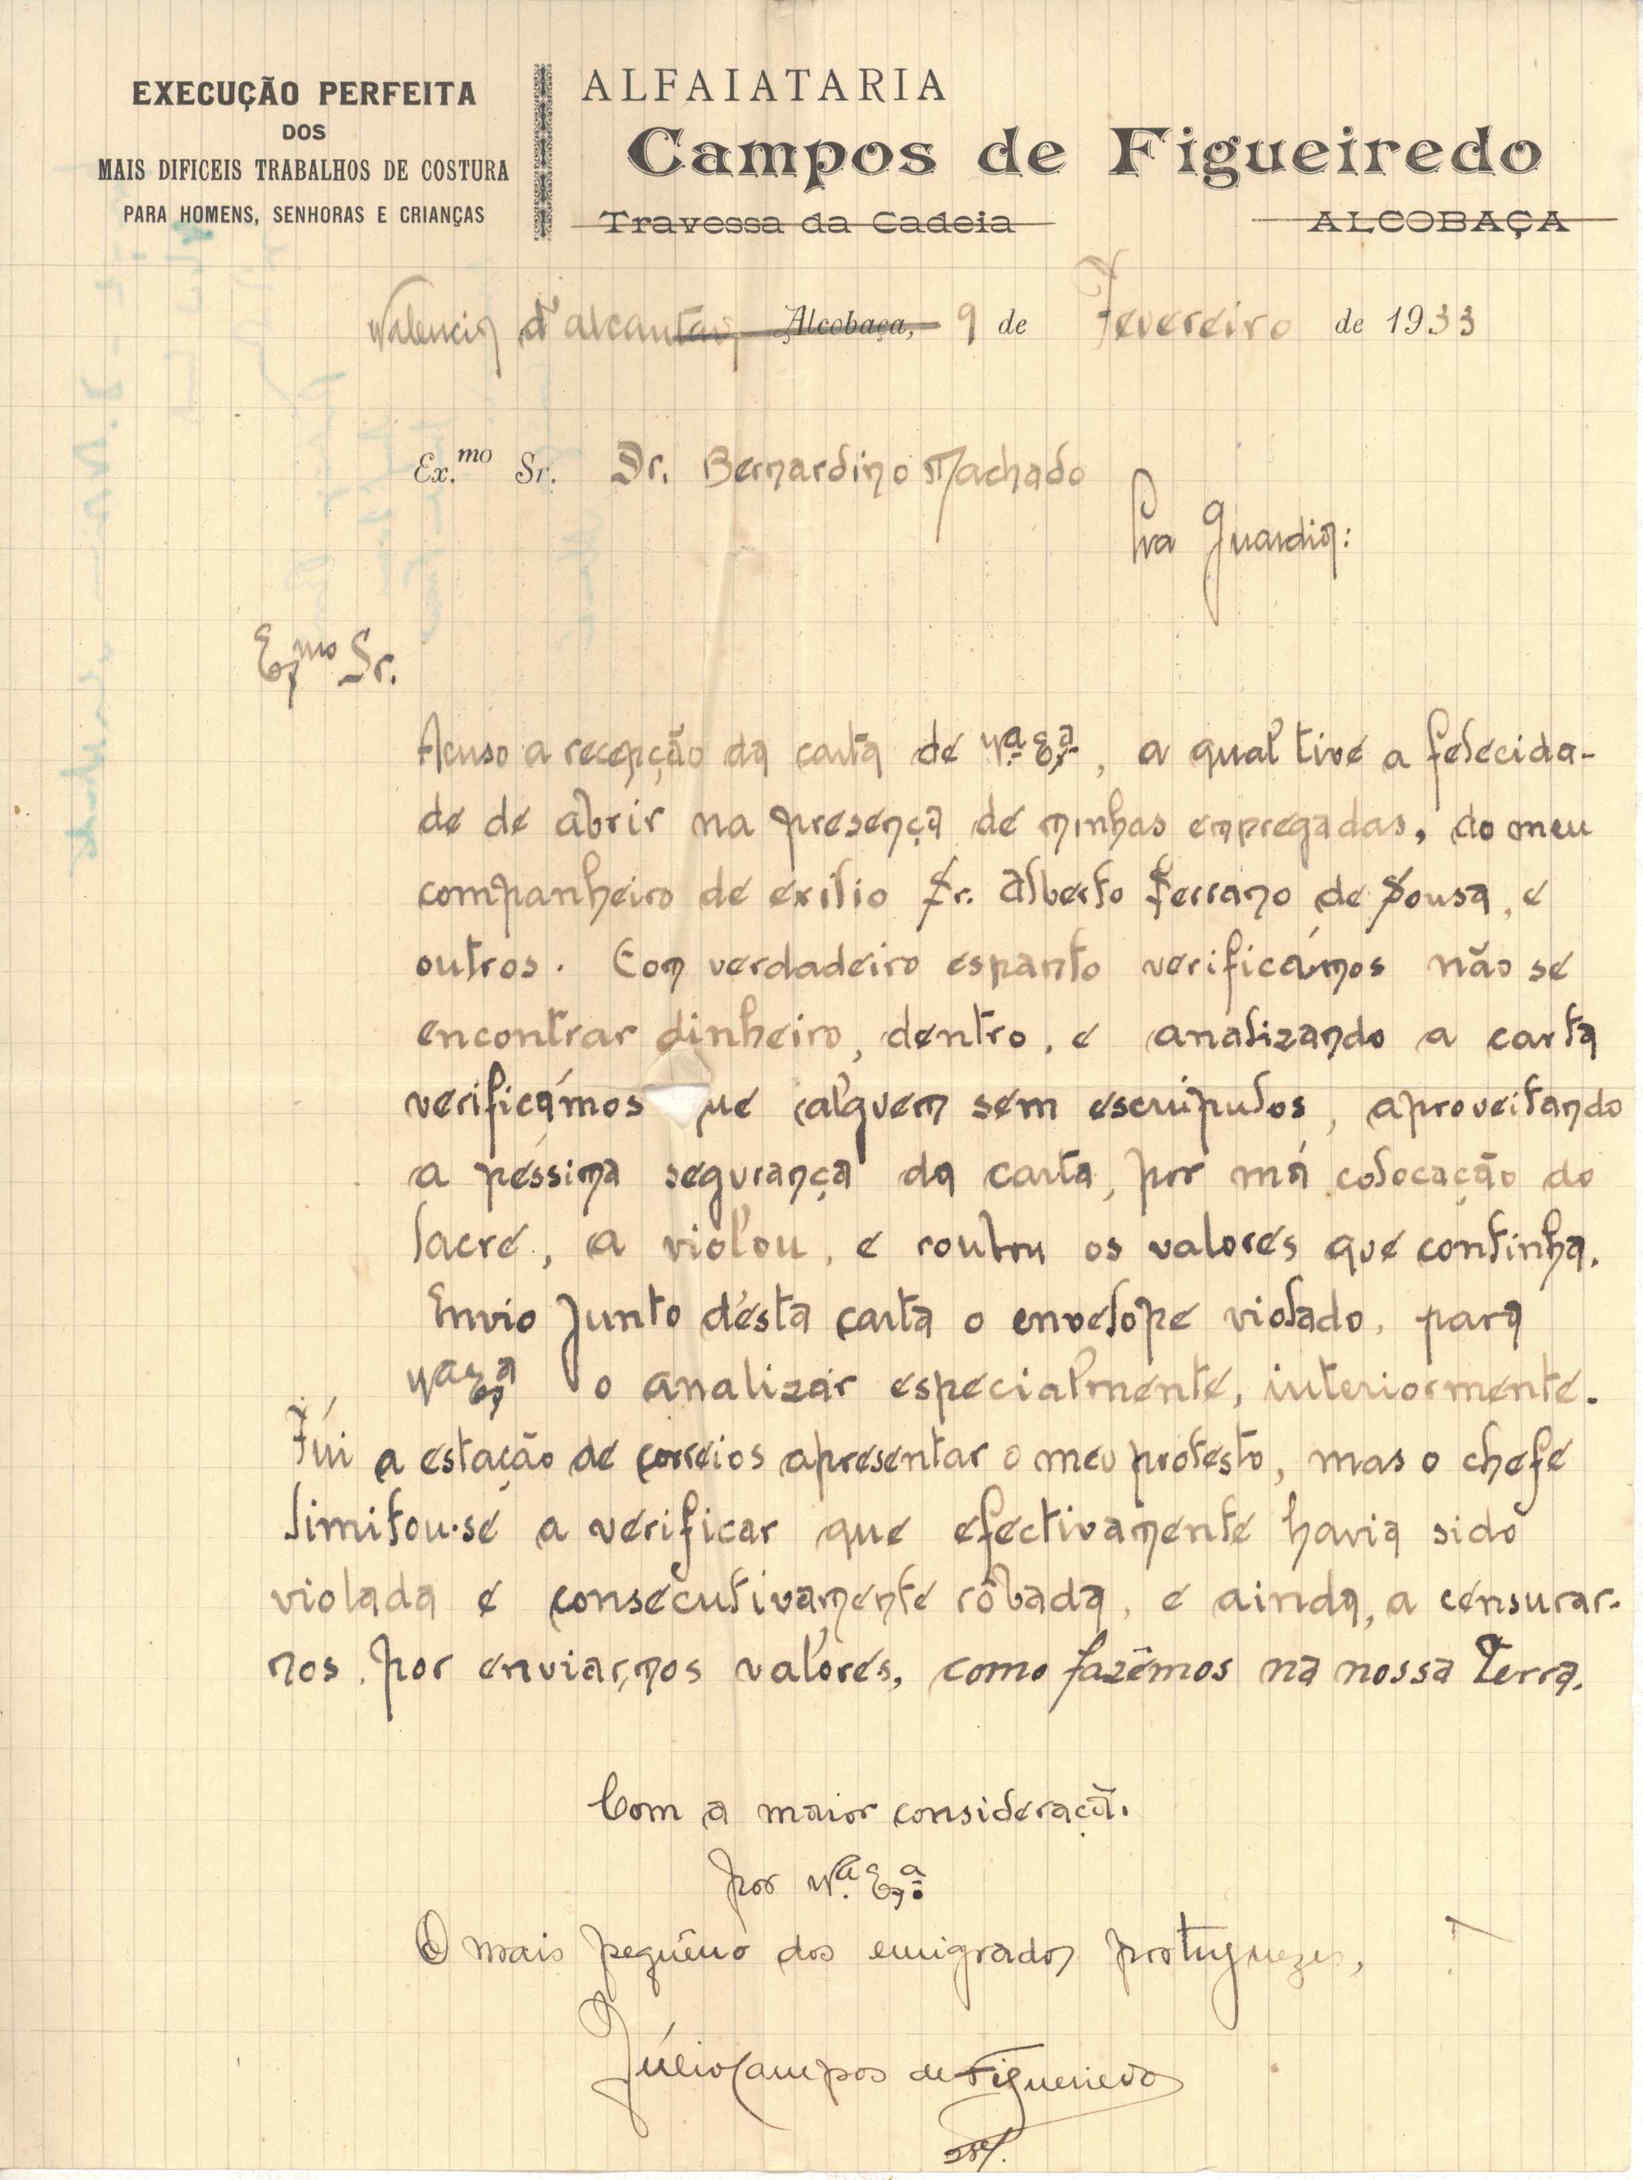 EXECUÇÃO PERFEITA
DOS
MAIS DIFICEIS TRABALHOS DE COSTURA
PARA HOMENS, SENHORAS E CRIANÇAS
ALFAIATARIA
Campos de Figueiredo
Travessa da Cadeia ALCOBAÇA
Valencia d'alcantara, Alcobaça, 9 de Fevereiro de 1933
Ex.mo Sr. Dr. Bernardino Machado
Pra Guardia:
Exmo Sr.
Acuso a recepção da carta de Vª. Exª., a qual tive a felecida-
de de abrir na presença de minhas empregadas, do meu
companheiro de exílio Sr. Alberto Serrano de Sousa, e
outros. Com verdadeiro espanto verificámos não se
encontrar dinheiro, dentro, e analizando a carta
verificámos que alguem sem escrúpulos, aproveitando
a péssima segurança da carta, por má colocação do
lacre, a violou, e roubou os valores que continha.
Envio junto désta carta o envelope violado, para
Vª Exª o analizar especialmente, interiormente.
Fúi a estação de correios apresentar o meu protesto, mas o chefe
limitou-se a verificar que efectivamente havia sido
violada e consecutivamente rôbada, e ainda, a censurar-
nos, por enviarmos valores, como fazêmos na nossa Terra.
Com a maior consideraçã.
Por Vª. Exª.
O mais pequêno dos emigrados protuguezes,
Júlio Campos de Figueiredo